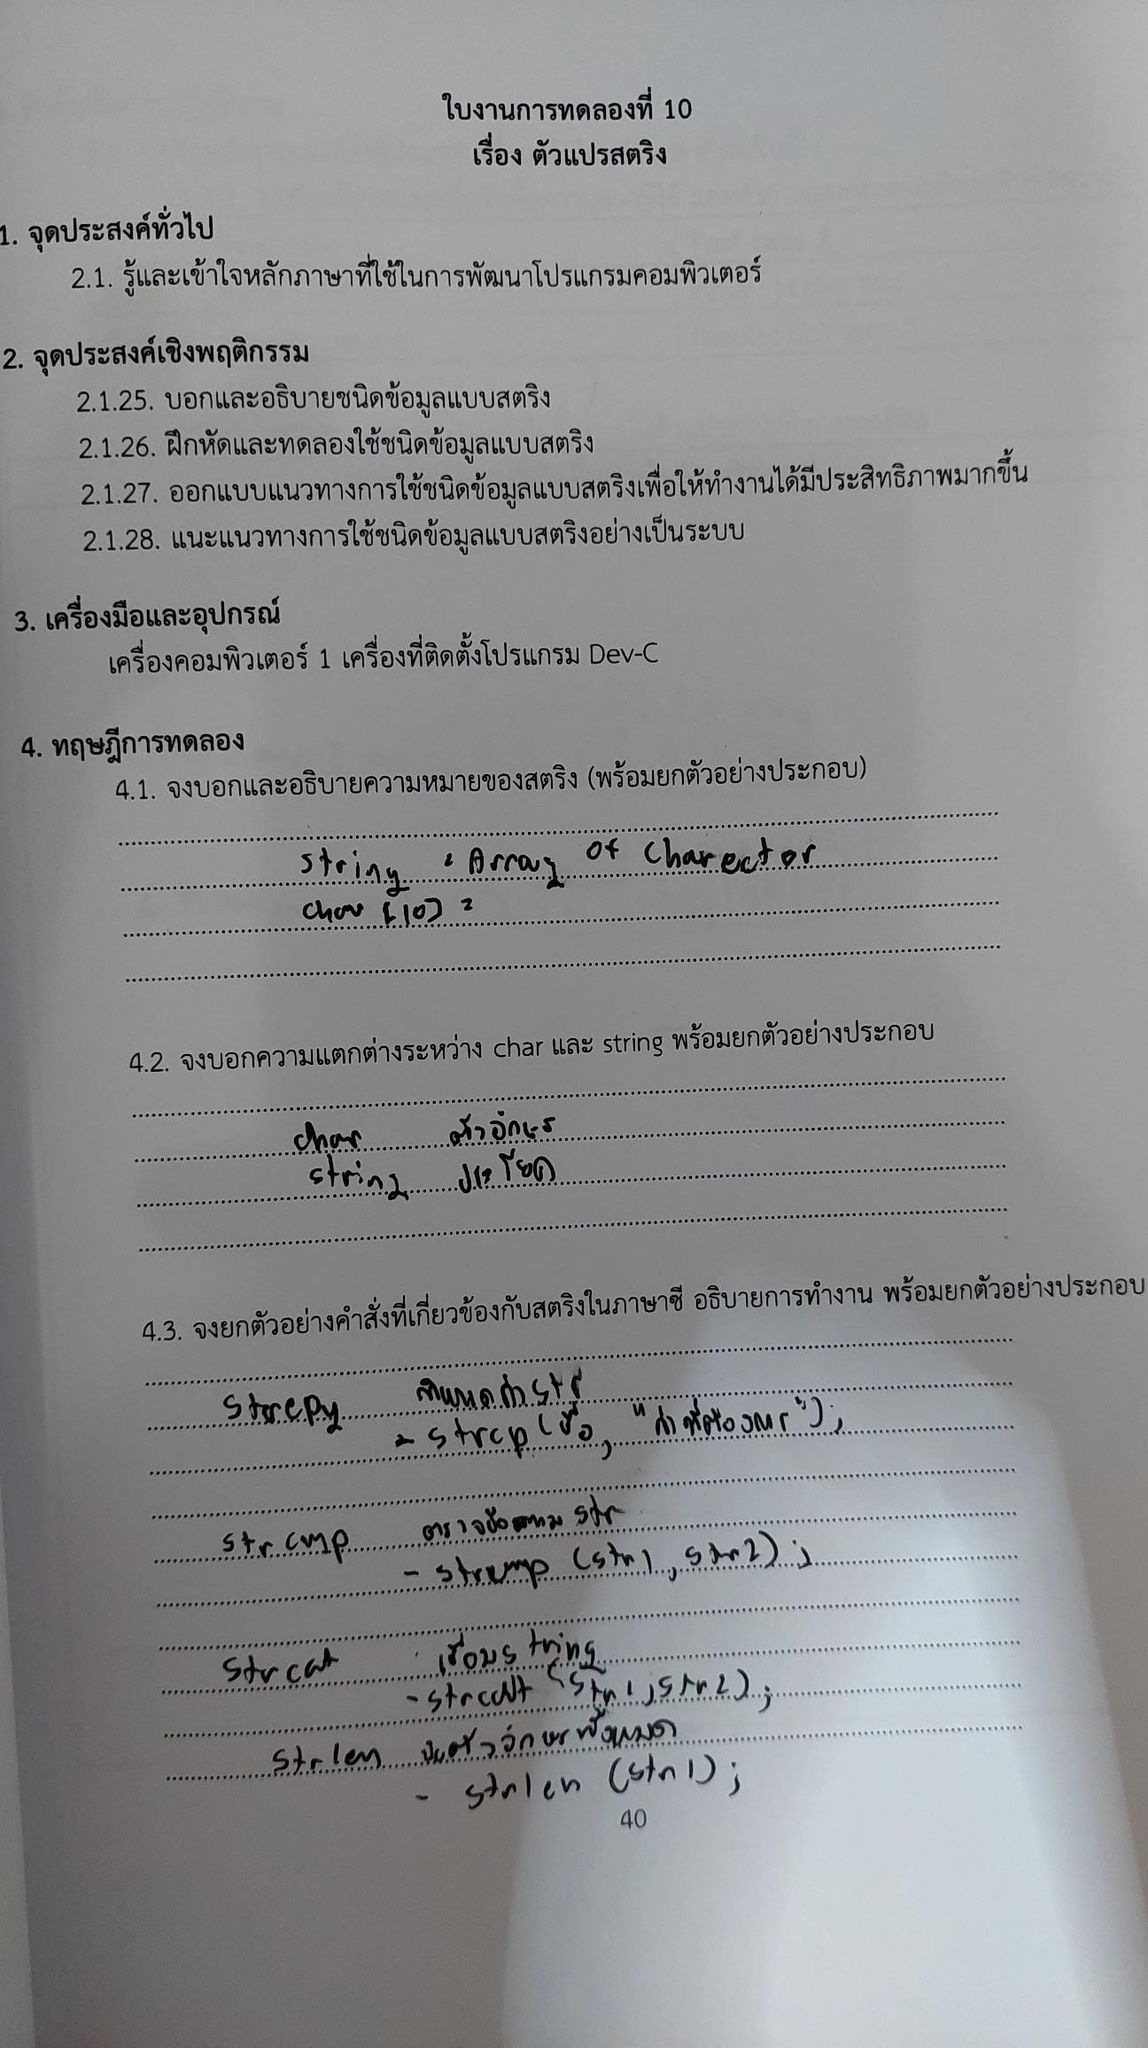 ใบงานการทดลองที่ 10
เรื่อง ตัวแปรสตริง
1. จุดประสงค์ทั่วไป
2.1. รู้และเข้าใจหลักภาษาที่ใช้ในการพัฒนาโปรแกรมคอมพิวเตอร์
2. จุดประสงค์เชิงพฤติกรรม
2.1.25. บอกและอธิบายชนิดข้อมูลแบบสตริง
2.1.26. ฝึกหัดและทดลองใช้ชนิดข้อมูลแบบสตริง
2.1.27. ออกแบบแนวทางการใช้ชนิดข้อมูลแบบสตริงเพื่อให้ทำงานได้มีประสิทธิภาพมากขึ้น
2.1.28. แนะแนวทางการใช้ชนิดข้อมูลแบบสตริงอย่างเป็นระบบ
3. เครื่องมือและอุปกรณ์
เครื่องคอมพิวเตอร์ 1 เครื่องที่ติดตั้งโปรแกรม Dev-C
4. ทฤษฎีการทดลอง
4.1. จงบอกและอธิบายความหมายของสตริง (พร้อมยกตัวอย่างประกอบ)
string = Array of Charector
char [10] =
4.2. จงบอกความแตกต่างระหว่าง char และ string พร้อมยกตัวอย่างประกอบ
char ตัวอักษร
string ประโยค
4.3. จงยกตัวอย่างคำสั่งที่เกี่ยวข้องกับสตริงในภาษาซี อธิบายการทำงาน พร้อมยกตัวอย่างประกอบ
strcpy กำหนดค่า str
- strcp (ชื่อ, "ค่าที่ต้องการ");
strcmp ตรวจข้อความ str
- strcmp (str1, str2);
strcat เชื่อม string
- strcat (str1, str2);
strlen นับตัวอักษรทั้งหมด
- strlen (str1);
40